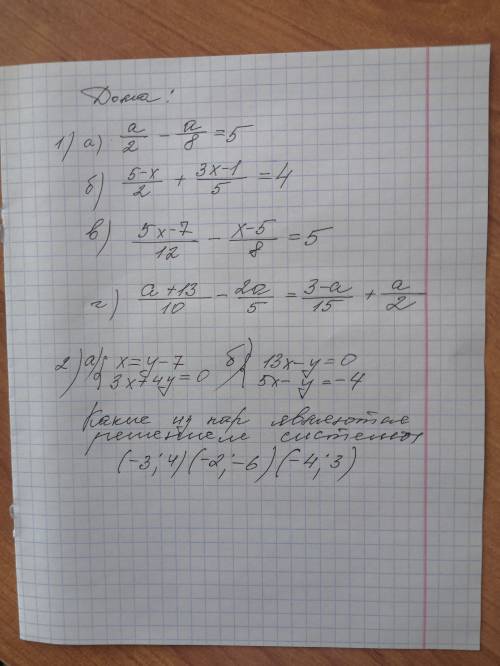 Дома:
1) а) a/2 - a/8 = 5
б) 5-x/2 + 3x-1/5 = 4
в) 5x-7/12 - x-5/8 = 5
г) a+13/10 - 2a/5 = 3-a/15 + a/2
2) а) { x=y-7 б) { 13x-y=0
3x+4y=0 5x-y=-4
Какие из пар являются
решением системы
(-3; 4) (-2; -6) (-4; 3)